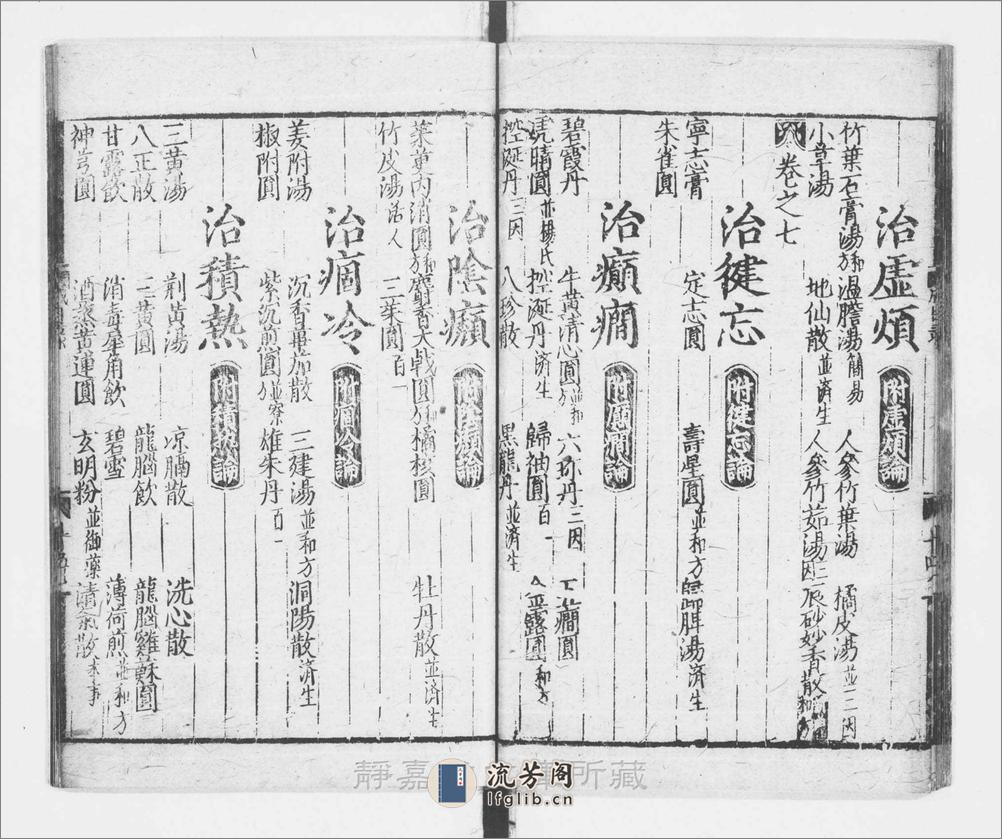 治虛煩 附虛煩論
竹葉石膏湯 溫膽湯簡易 人參竹葉湯 橘皮湯並三因
小草湯 地仙散並済生 人參竹茹湯三因 辰砂妙香散和
卷之七
治健忘 附健忘論
寧志膏 定志圓 壽星圓並和方 歸脾湯済生
朱雀圓
治癲癇 附癲癇論
碧霞丹 牛黄清心圓並和 六珍丹三因 五癇圓
虎睛圓並楊氏 控涎丹済生 歸神圓百一 金露圓和方
控涎丹三因 八珍散 黑龍丹並済生
治陰㿗 附陰㿗論
茱萸内消圓 麝香大戟圓 橘核圓 牡丹散並済生
竹皮湯活人 三茱圓百一
治痼冷 附痼冷論
姜附湯 沉香蓽茄散 三建湯並和方 洞陽散済生
椒附圓 紫沉煎圓 雄朱丹百一
治積熱 附積熱論
三黄湯 荆黄湯 凉膈散 洗心散
八正散 三黄圓 龍腦飲 龍腦雞蘇圓
甘露飲 消毒犀角飲 碧雪 薄荷煎並和方
神芎圓 酒蒸黄連圓 玄明粉並御藥 清氣散本事
靜嘉 所藏
流芳阁
lfglib.cn